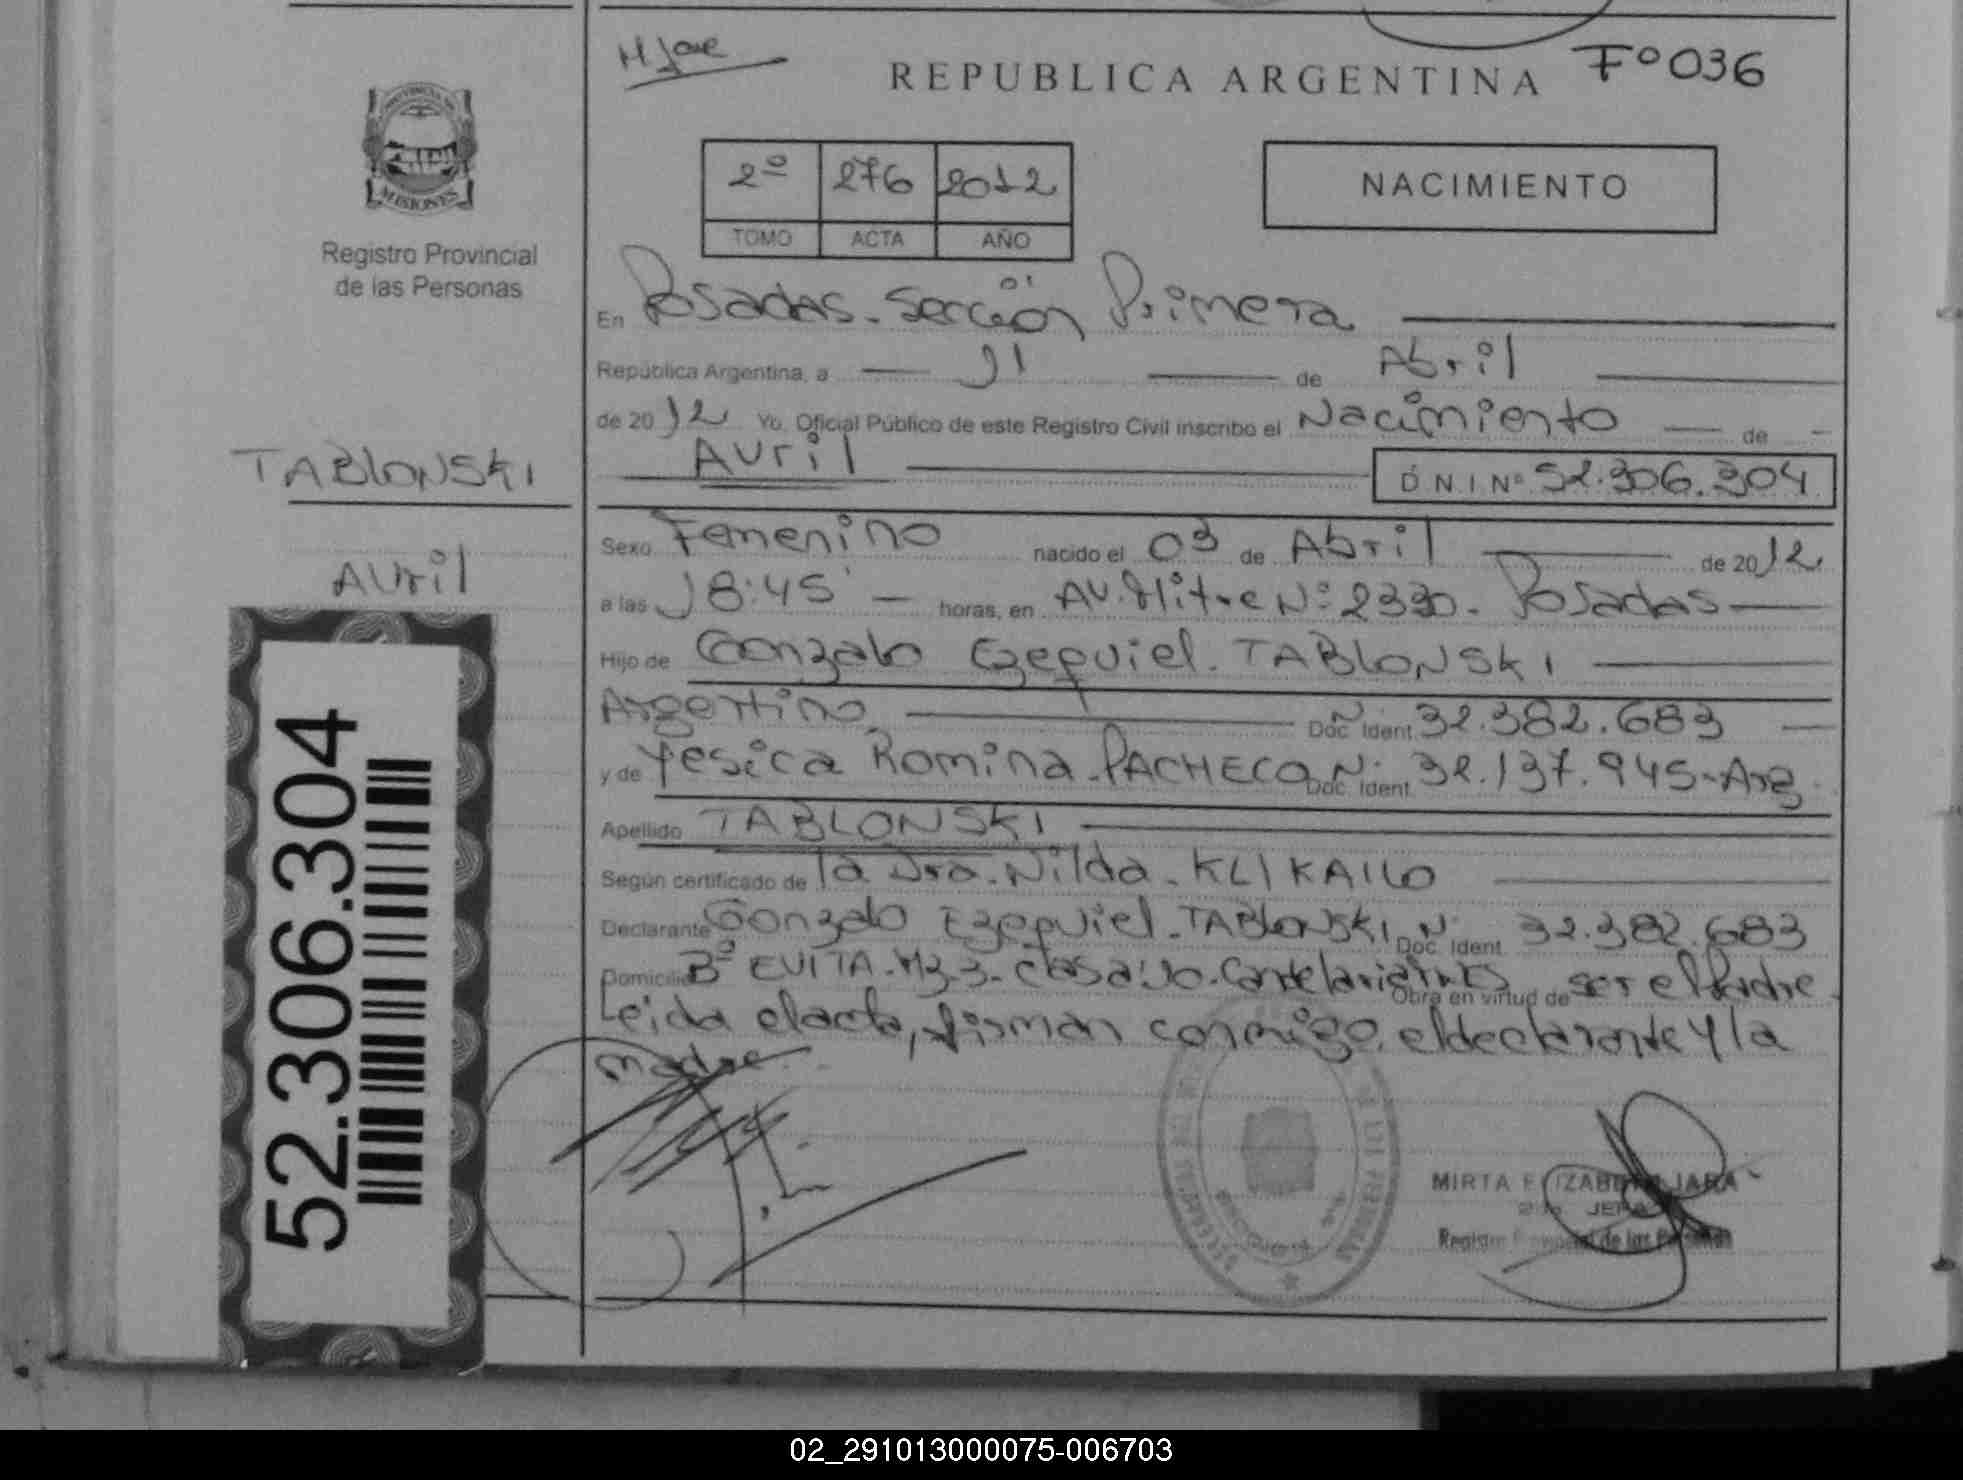 F° 036
REPUBLICA ARGENTINA
PROVINCIA DE
MISIONES
Registro Provincial
de las Personas
2º 276 2012
TOMO ACTA AÑO
NACIMIENTO
En Posadas. Sección Primera
República Argentina, a 11 de Abril
de 2012 Yo, Oficial Público de este Registro Civil inscribo el Nacimiento de
Avril
D.N.I Nº 52.306.304
TABLONSKI
Avril
Sexo Femenino nacido el 03 de Abril de 2012
a las 18:45' horas, en AV. Mitre Nº 2330. Posadas
Hijo de Gonzalo Ezequiel. TABLONSKI
Argentino Doc. Ident. Nº 32.382.683
y de Yesica Romina. PACHECO Doc. Ident. Nº 32.137.945-Arg
Apellido TABLONSKI
Según certificado de la Dra. Nilda. KLIKAILO
Declarante Gonzalo Ezequiel. TABLONSKI Doc. Ident. Nº 32.382.683
Domicilio Bº EVITA. Mz 3. Casa: 10. Candelaria Mnes Obra en virtud de ser el Padre
Leida el acta, firman conmigo, el declarante y la
madre.
MIRTA ELIZABETH JARA
JEFA
Registro Provincial de las Personas
52.306.304
02_291013000075-006703